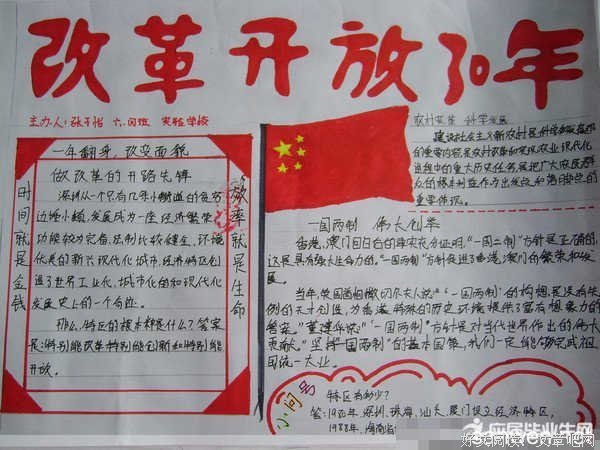 改革开放30年
主办人：张千怡 六、四班 实验学校
一年翻身，改变面貌
做改革的开路先锋
深圳从一个只有几年小
边陲小镇，发展成为一座经济繁荣
功能较为完备、法制比较健全、环境
优美的新兴现代化城市，经济特区创
造了世界工业化、城市化的和现代化
发展史上的一个奇迹。
那么，特区的根本特是什么？答案
是：特别能改革特别能创新和特别能
开放。
时间就是金钱
效率就是生命
农村改革 科学发展
建设社会主义新农村是科学
的重要内容是农村改革和发展农业现代化
进程中的重大历史任务是把广大农民群
众的根本利益作为出发点和
重要体现。
一国两制 伟大创举
香港、澳门回归后的事实充分证明，“一国二制”方针是正确的，
这是具有强大生命力的。“一国两制”方针促进了香港、澳门的繁荣和发
展。
当年，英国首相撒切尔夫人说：“‘一国两制’的构想，是没有先
例的天才创造，为香港特殊的历史环境提供了富有想象力的
答案。”董建华说：“‘一国两制’方针是对当代世界作出的伟大
贡献。”坚持“一国两制”的基本国策，我们一定能够完成祖
国统一大业。
小问号
特区有多少？
答：1980年深圳、珠海、汕头、厦门设立经济特区，
1988年，海南省
应届毕业生网
YJBYS.COM
好文阅读：文章吧网